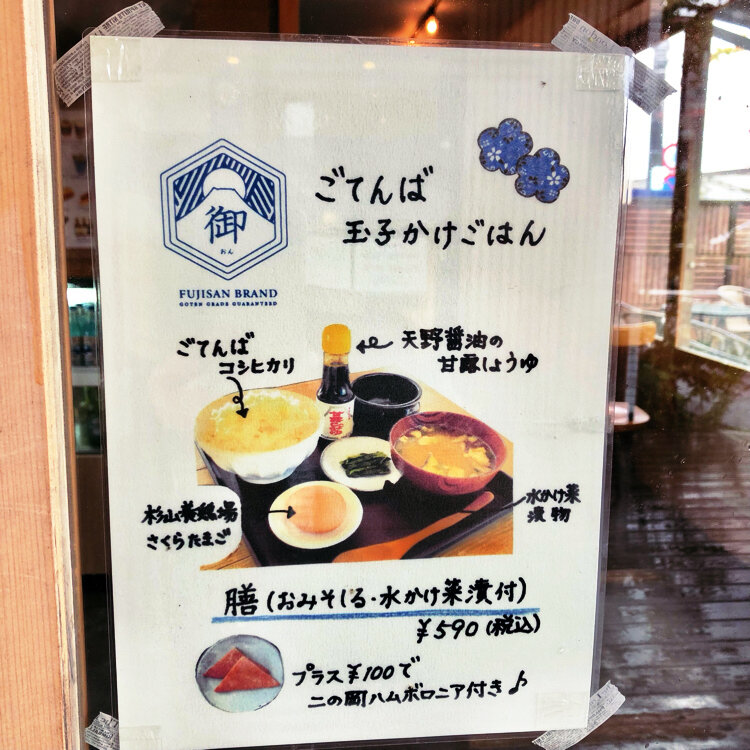 ごてんば
玉子かけごはん
御
おん
FUJISAN BRAND
GOTEN GRADE GUARANTEED
ごてんば
コシヒカリ
天野醤油の
甘露しょうゆ
杉山養鶏場
さくらたまご
水かけ菜
漬物
膳(おみそしる・水かけ菜漬付)
¥590(税込)
プラス¥100で
二の岡ハムボロニア付き♪